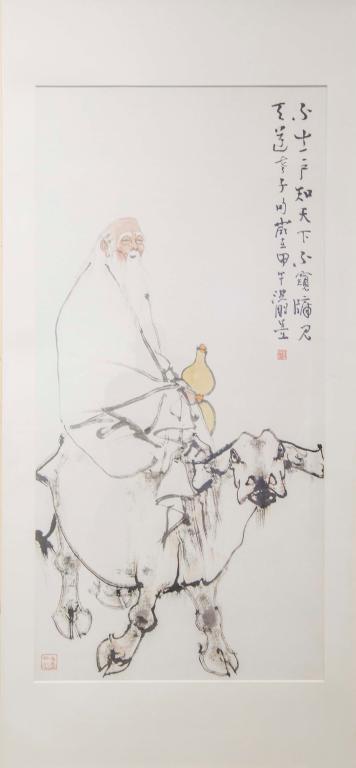 不出户知天下不窺牖见
天道老子句歲在甲午洪